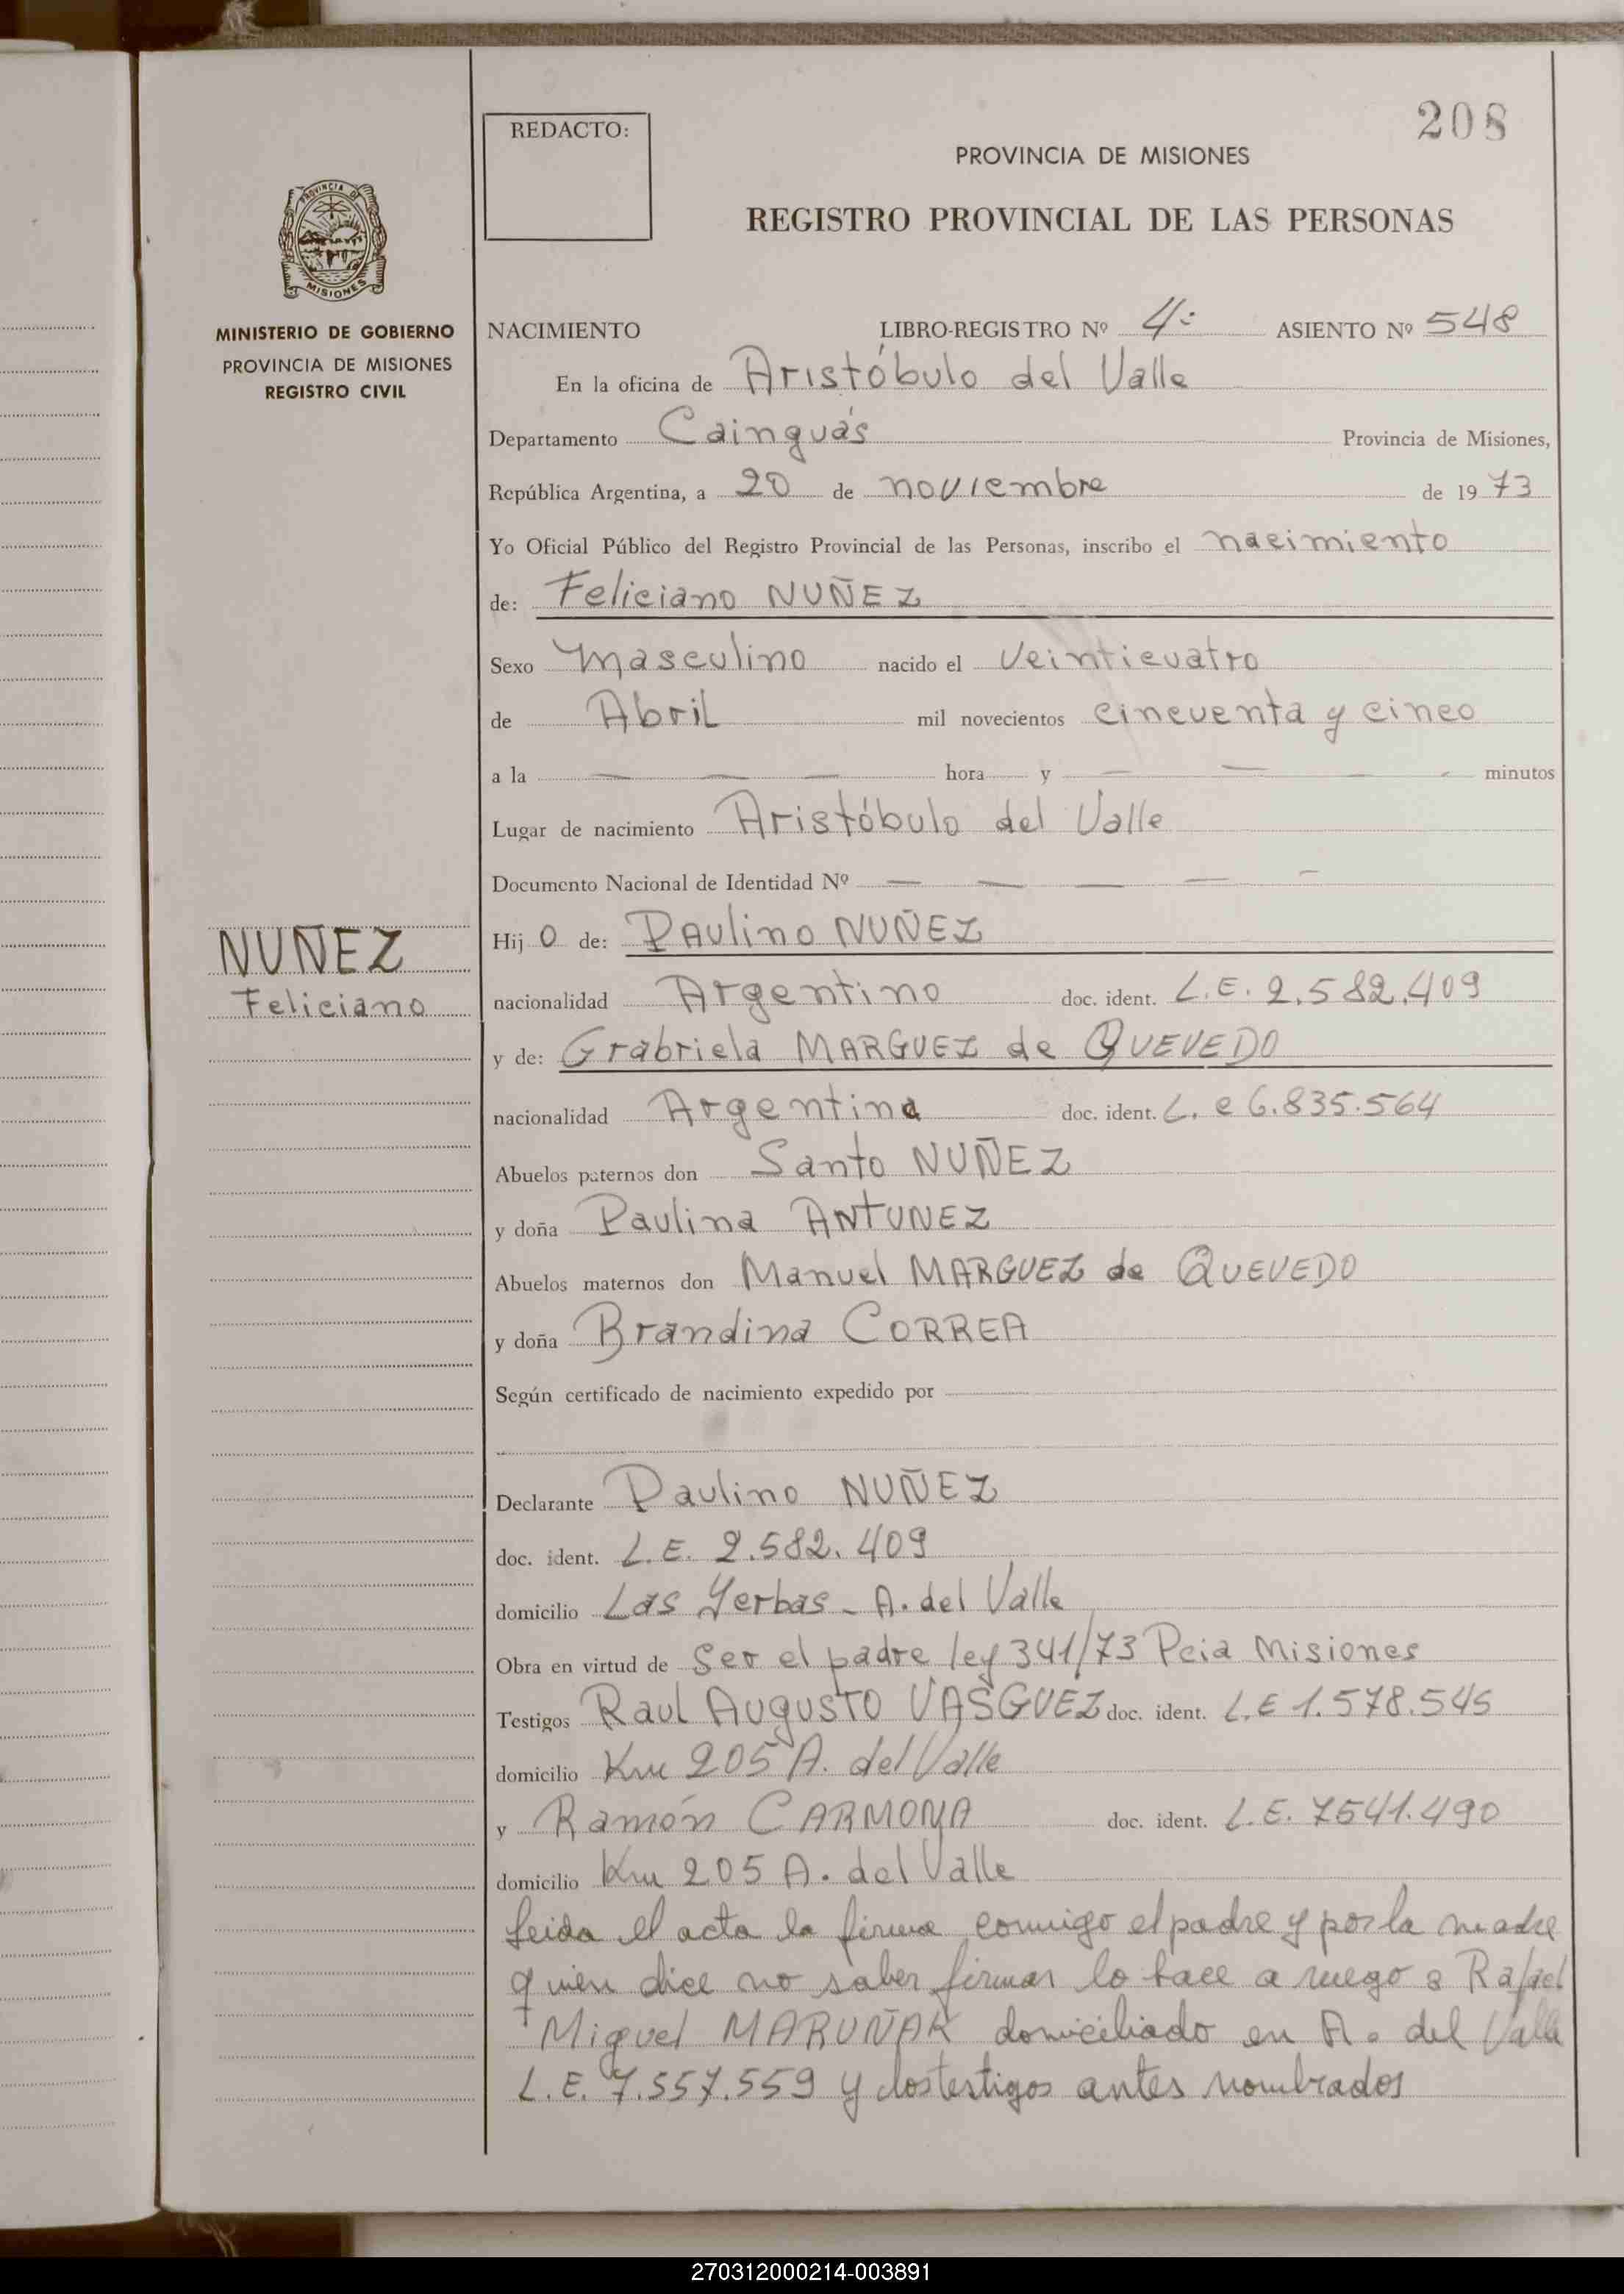 208
REDACTO:
PROVINCIA DE MISIONES
REGISTRO PROVINCIAL DE LAS PERSONAS
PROVINCIA DE
MISIONES
MINISTERIO DE GOBIERNO
PROVINCIA DE MISIONES
REGISTRO CIVIL
NACIMIENTO LIBRO-REGISTRO Nº 4º ASIENTO Nº 548
En la oficina de Aristóbulo del Valle
Departamento Cainguás Provincia de Misiones,
República Argentina, a 20 de noviembre de 1973
Yo Oficial Público del Registro Provincial de las Personas, inscribo el nacimiento
de: Feliciano NUÑEZ
Sexo Masculino nacido el Veinticuatro
de Abril mil novecientos cincuenta y cinco
a la — — — hora y — — — - minutos
Lugar de nacimiento Aristóbulo del Valle
Documento Nacional de Identidad Nº — — — — —
NUÑEZ
Feliciano
Hijo de: Paulino NUÑEZ
nacionalidad Argentino doc. ident. L.E. 2.582.409
y de: Grabriela MARGUEZ de QUEVEDO
nacionalidad Argentina doc. ident. L. e 6.835.564
Abuelos paternos don Santo NUÑEZ
y doña Paulina ANTUNEZ
Abuelos maternos don Manuel MARGUEZ de QUEVEDO
y doña Brandina CORREA
Según certificado de nacimiento expedido por
Declarante Paulino NUÑEZ
doc. ident. L.E. 2.582.409
domicilio Las Yerbas - A. del Valle
Obra en virtud de Ser el padre ley 341/73 Pcia Misiones
Testigos Raul Augusto VASGUEZ doc. ident. L.E 1.578.545
domicilio Km 205 A. del Valle
y Ramón CARMONA doc. ident. L.E. 7541.490
domicilio Km 205 A. del Valle
Leida el acta la firma conmigo el padre y por la madre
quien dice no saber firmar lo hace a ruego a Rafael
Miguel MARUÑAK domiciliado en A. del Valle
L.E. 7.557.559 y los testigos antes nombrados
270312000214-003891